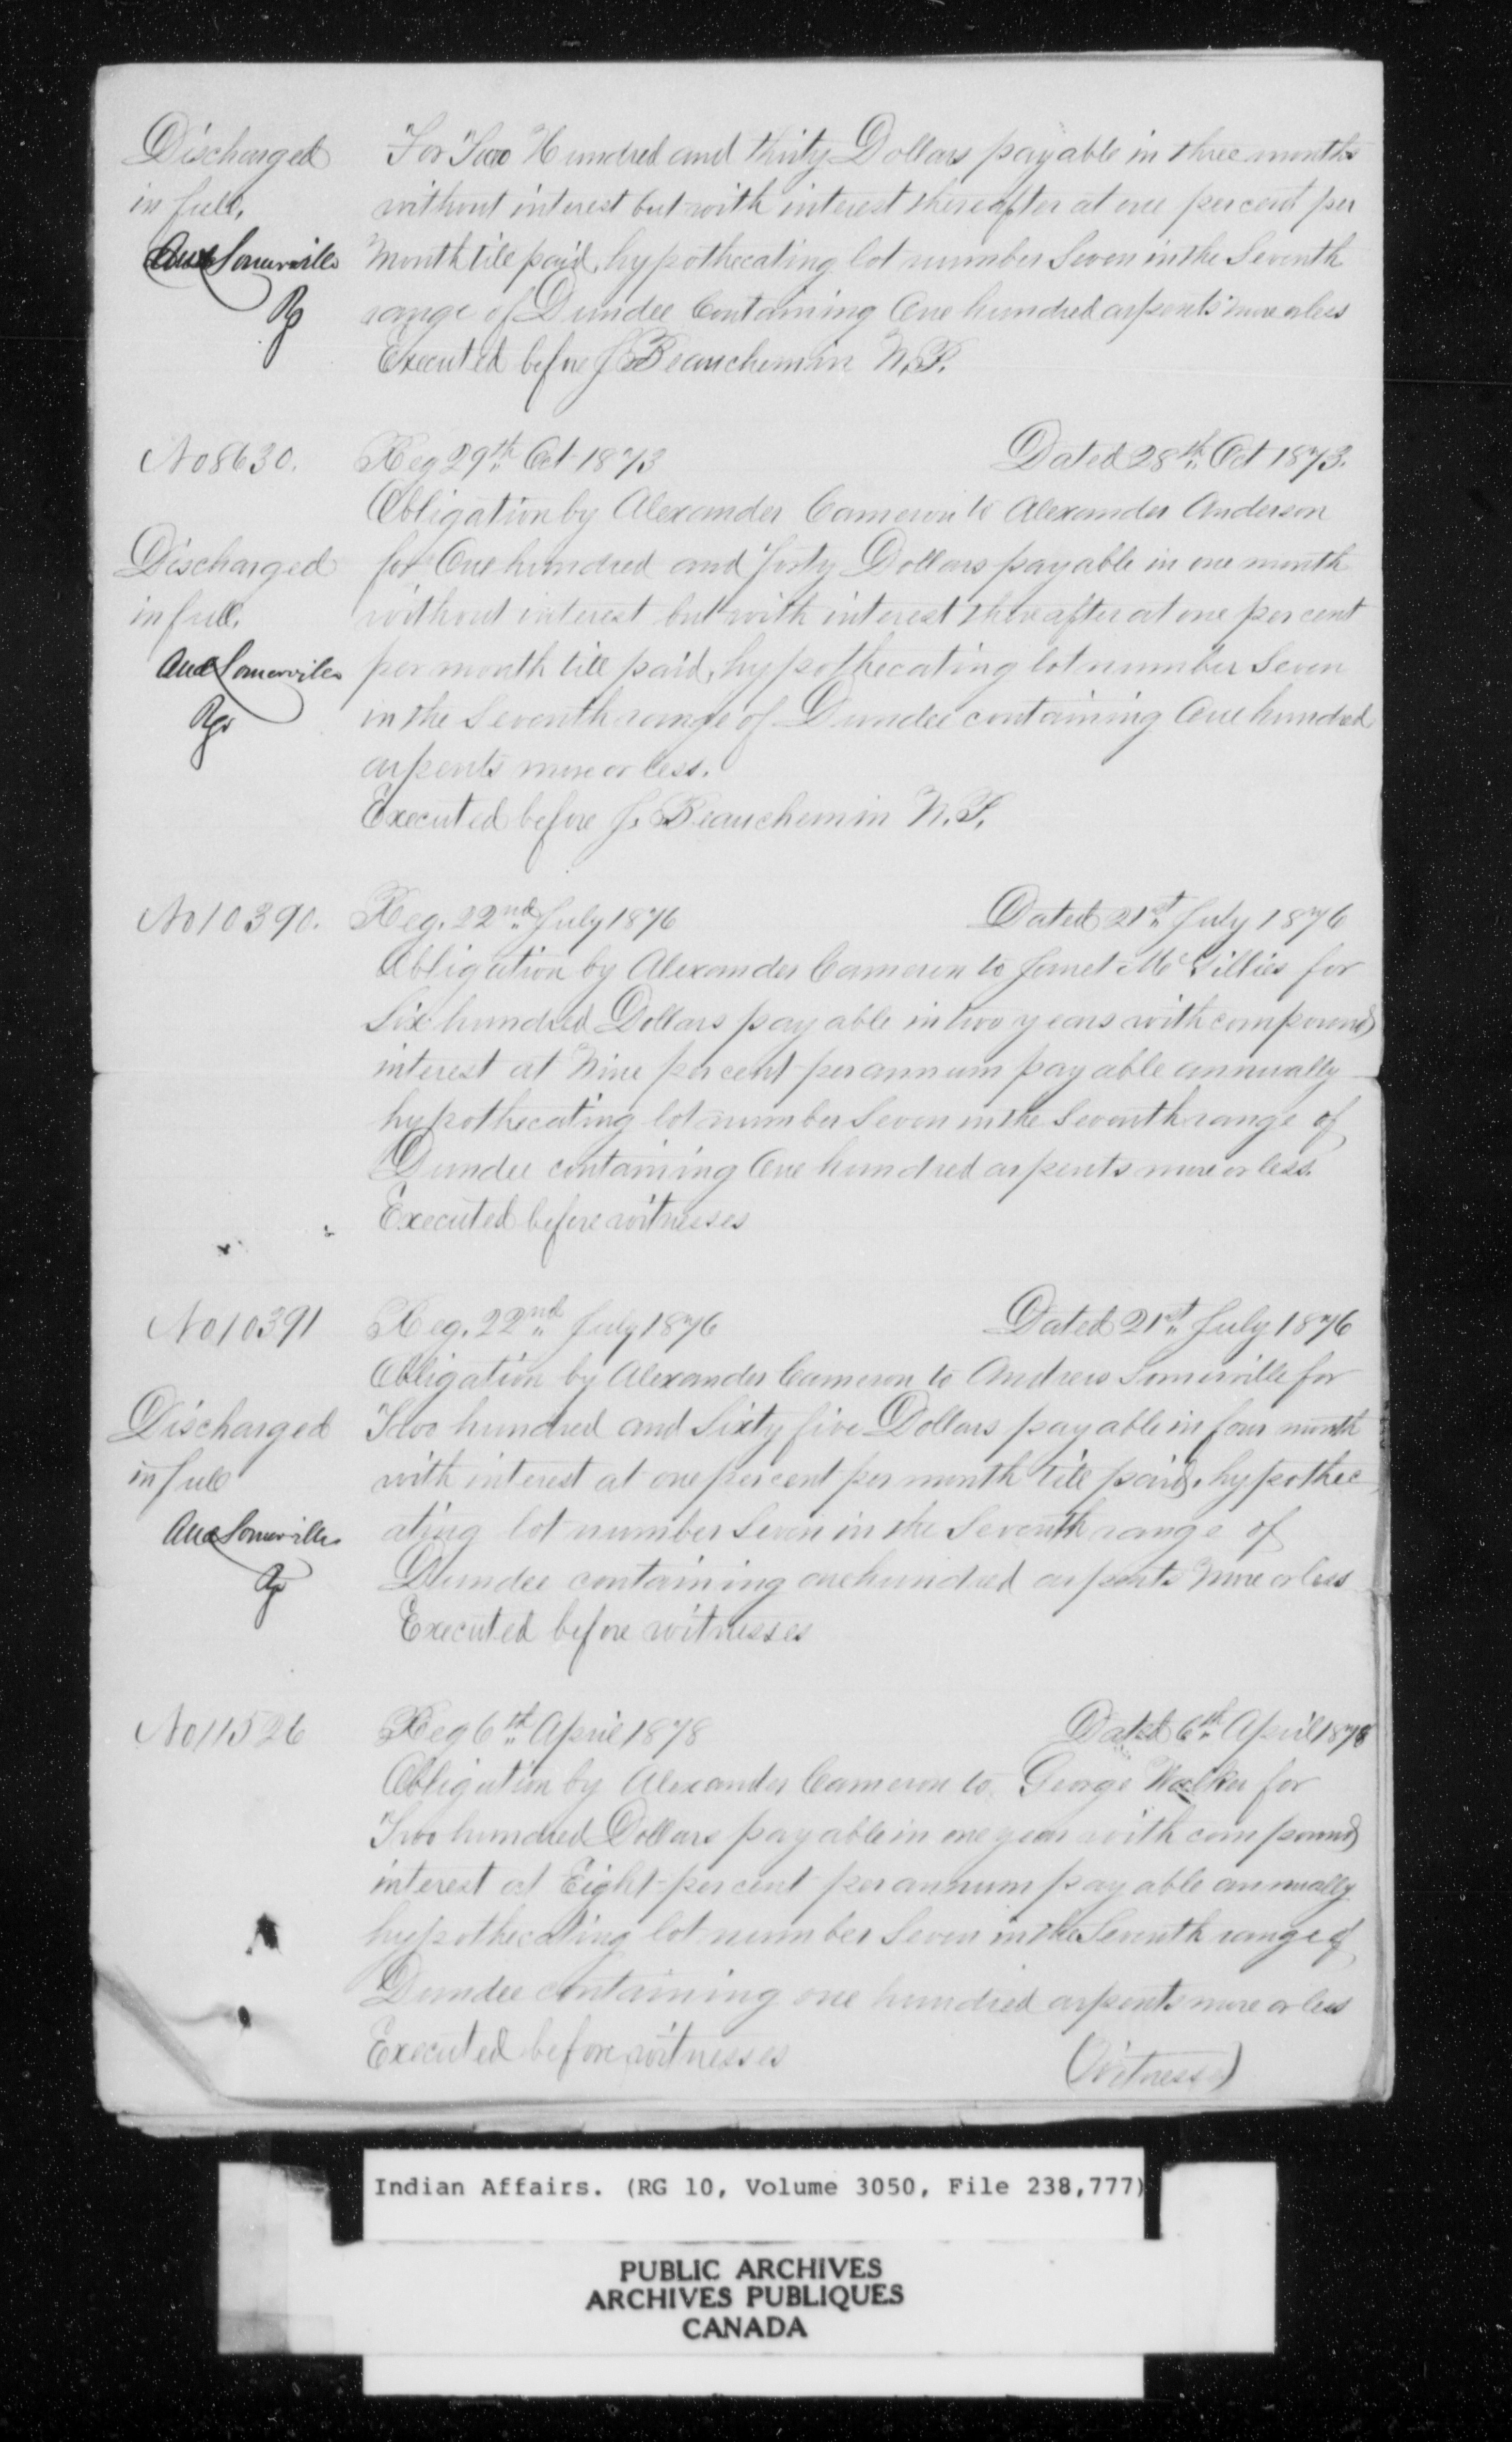 Discharged
in full,
And Somerville
Rgr
For Two Hundred and thirty Dollars payable in three months
without interest but with interest thereafter at one percent per
Month till paid, hypothecating lot number Seven in the Seventh
range of Dundee Containing One hundred arpents more or less
Executed before J. Beauchemin N.P.
No 8630. Reg 29th Oct 1873 Dated 28th Oct 1873.
Obligation by Alexander Cameron to Alexander Anderson
Discharged
in full,
And Somerville
Rgr
for One hundred and forty Dollars payable in one month
without interest but with interest thereafter at one per cent
per month till paid, hypothecating lot number Seven
in the Seventh range of Dundee containing One hundred
arpents more or less.
Executed before J. Beauchemin N.P.
No 10390. Reg. 22nd July 1876 Dated 21st July 1876
Obligation by Alexander Cameron to Jennet McGillies for
Six hundred Dollars payable in two years with compound
interest at Nine per cent per annum payable annually
hypothecating lot number Seven in the Seventh range of
Dundee containing One hundred arpents more or less.
Executed before witnesses
No 10391 Reg. 22nd July 1876 Dated 21st July 1876
Obligation by Alexander Cameron to Andrew Somerville for
Discharged
in full
And Somerville
Rgr
Two hundred and Sixty five Dollars payable in four month
with interest at one per cent per month till paid, hypothec
ating lot number Seven in the Seventh range of
Dundee containing one hundred arpents more or less
Executed before witnesses
No 11526 Reg 6th April 1878 Dated 6th April 1878
Obligation by Alexander Cameron to George Walker for
Two hundred Dollars payable in one year with compound
interest at Eight per cent per annum payable annually
hypothecating lot number Seven in the Seventh range of
Dundee containing one hundred arpents more or less
Executed before witnesses
(Witness)
Indian Affairs. (RG 10, Volume 3050, File 238,777)
PUBLIC ARCHIVES
ARCHIVES PUBLIQUES
CANADA